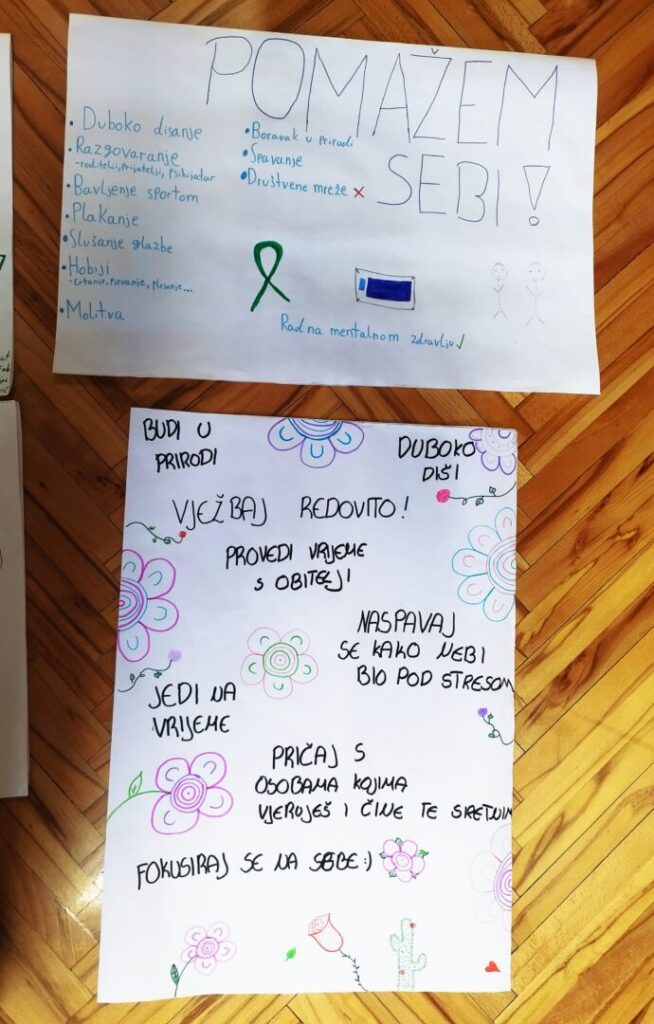 POMAŽEM
SEBI!
• Duboko disanje
• Razgovaranje
-roditelji, prijatelji, psihijatar
• Bavljenje sportom
• Plakanje
• Slušanje glazbe
• Hobiji
-Crtanje, pjevanje, plesanje...
• Molitva
• Boravak u prirodi
• Spavanje
• Društvene mreže ×
Rad na mentalnom zdravlju ✓
BUDI U
PRIRODI
DUBOKO
DIŠI
VJEŽBAJ REDOVITO!
PROVEDI VRIJEME
S OBITELJI
NASPAVAJ
SE KAKO NEBI
BIO POD STRESOM
JEDI NA
VRIJEME
PRIČAJ S
OSOBAMA KOJIMA
VJERUJEŠ I ČINE TE SRETNIM
FOKUSIRAJ SE NA SEBE :)